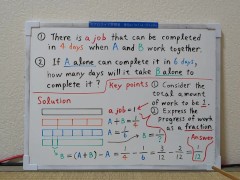 ① There is a job that can be completed
in 4 days when A and B work together.
② If A alone can complete it in 6 days,
how many days will it take B alone to
complete it?
Key points
① Consider the
total amount
of work to be 1.
② Express the
progress of work
as a fraction.
Solution
a job = 1
A + B = 1/4
A = 1/6
B = 1/12
Answer
B = (A+B) - A = 1/4 - 1/6 = 3/12 - 2/12 = 1/12